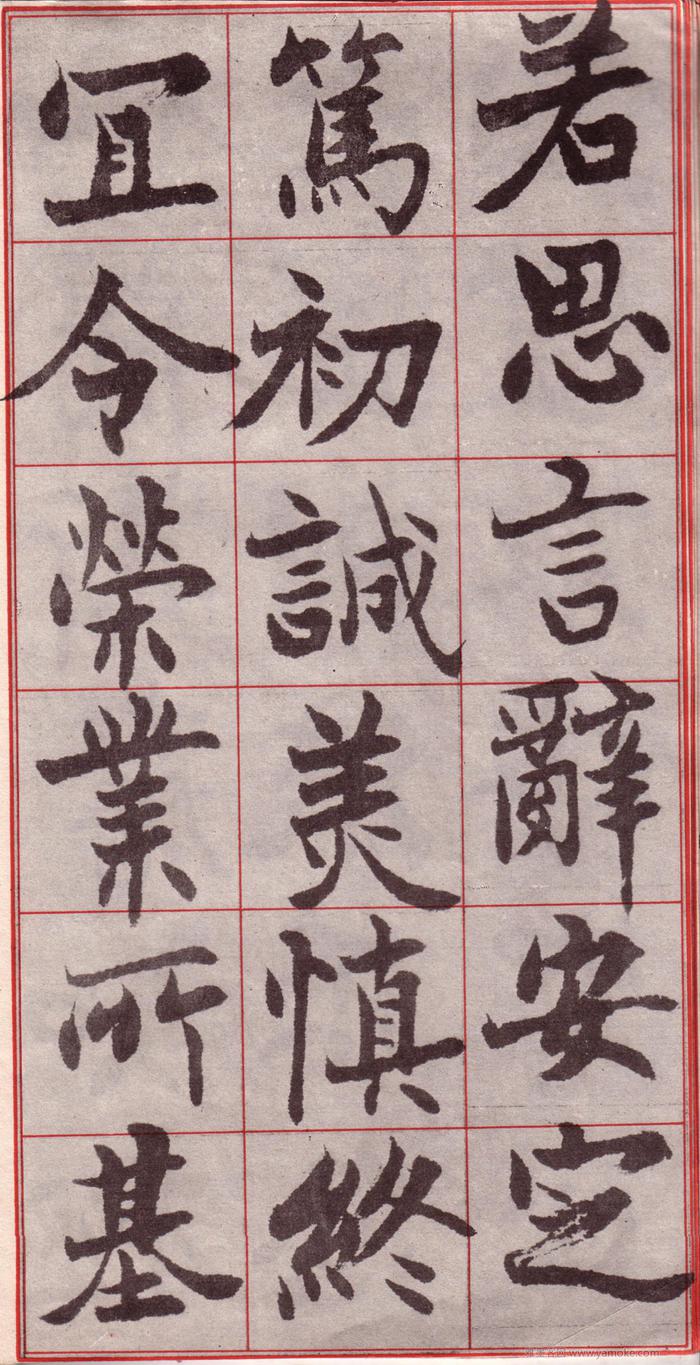 若思言辭安定
篤初誠美慎終
宜令榮業所基
www.yamoke.com